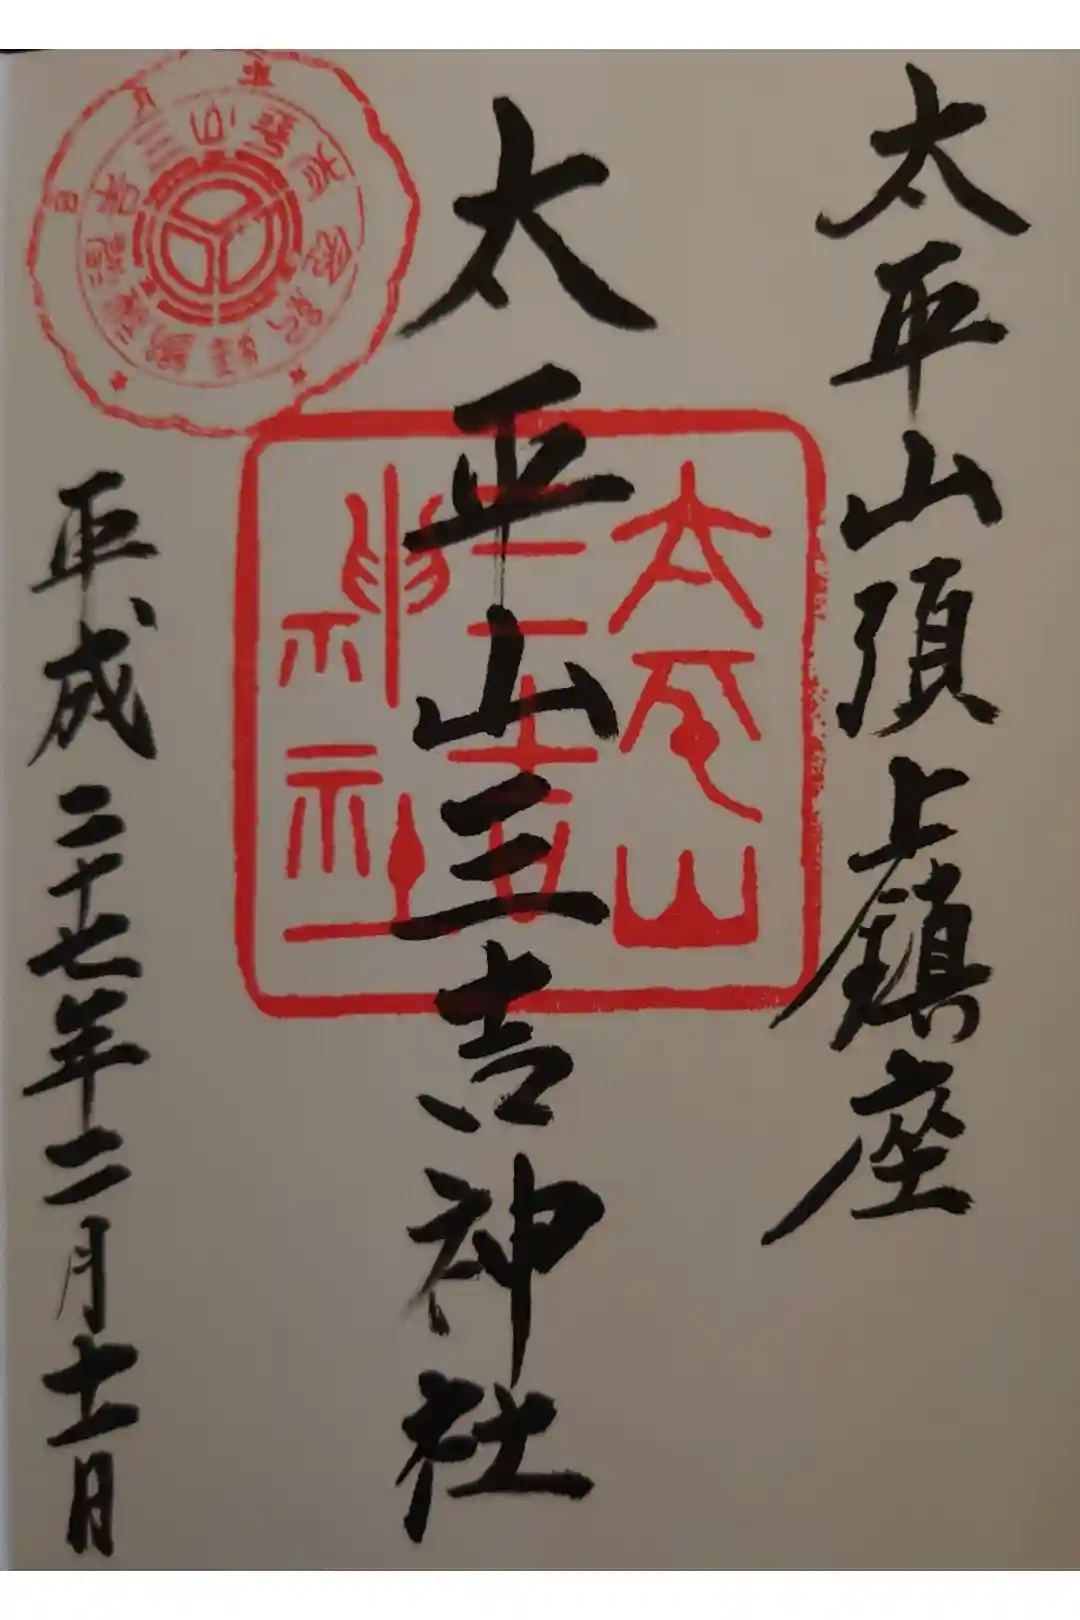 太平山頂上鎮座
太平山三吉神社
太平山
三吉
神社
平成二十七年二月十一日